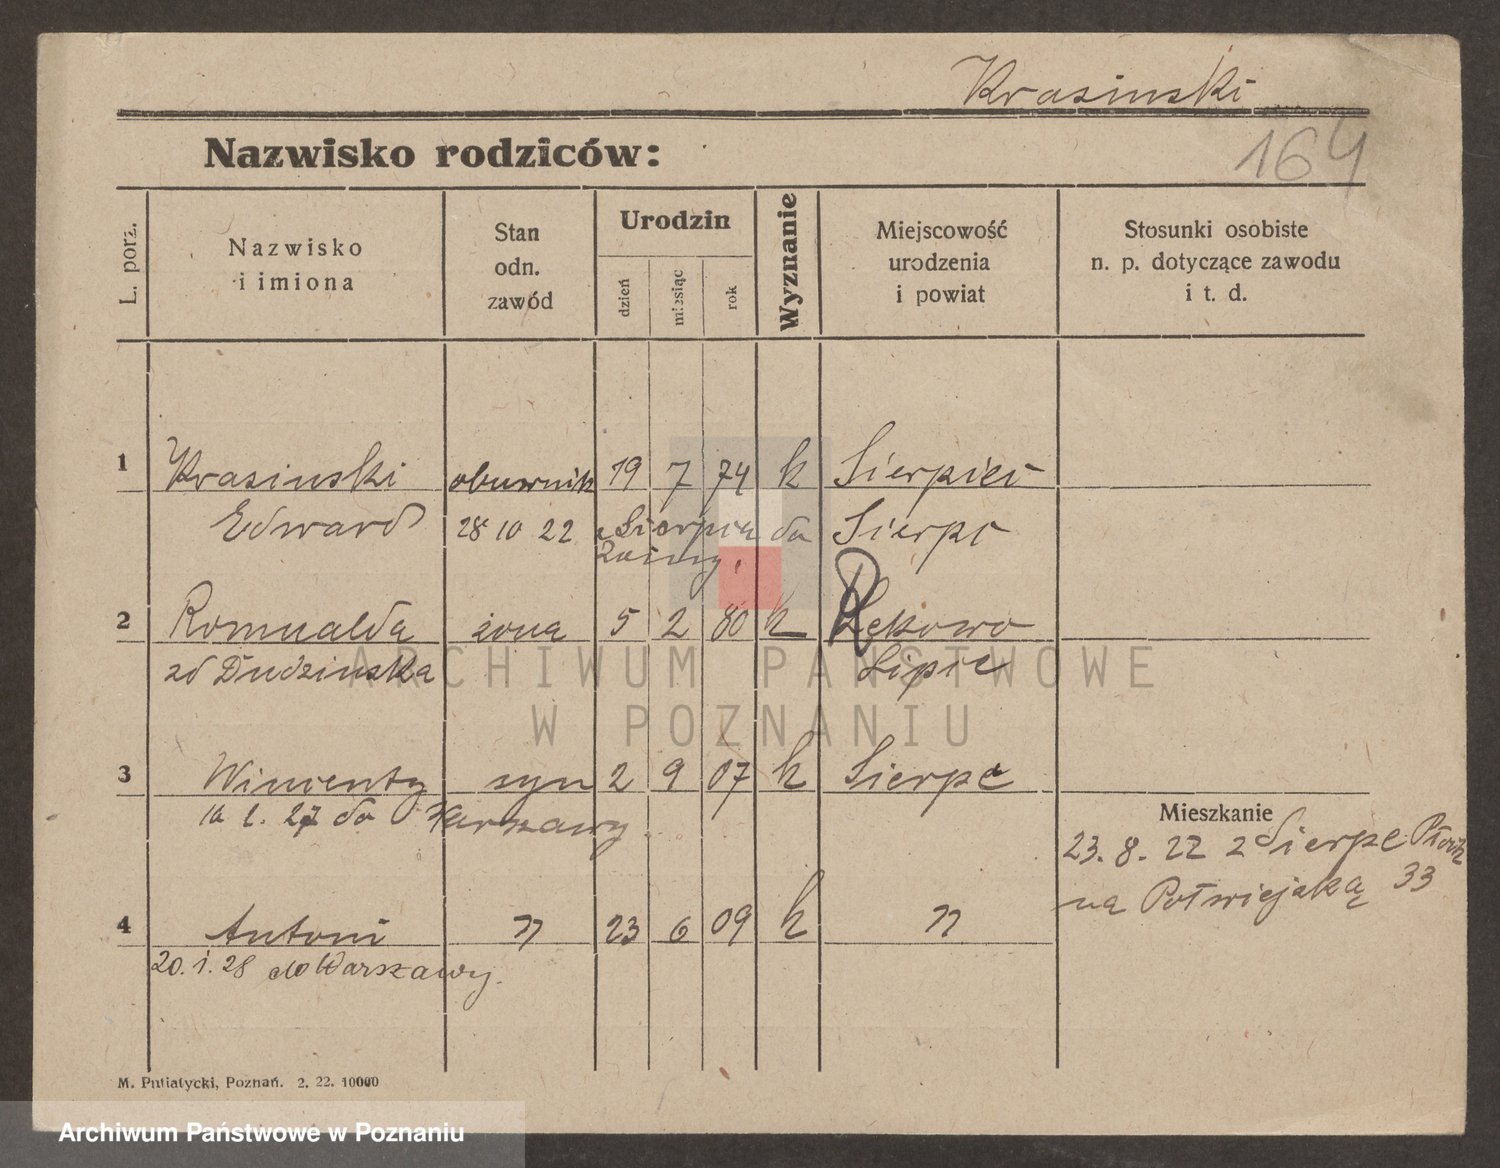 Krasinski
164
Nazwisko rodziców:
L. porz.
Nazwisko
i imiona
Stan
odn.
zawód
Urodzin
dzień
miesiąc
rok
Wyznanie
Miejscowość
urodzenia
i powiat
Stosunki osobiste
n. p. dotyczące zawodu
i t. d.
1 Krasinski obuwnik 19 7 74 k Sierpiec
Edward 28 10 22 Sierpca do Sierpc
2 Romualda żona 5 2 80 k Rękowo
zd Dudzinska Lipie
3 Wincenty syn 2 9 07 k Sierpc
27 do Warszawy
Mieszkanie
23. 8. 22 z Sierpc Płock
na Półwiejską 33
4 Antoni " 23 6 09 k "
20. 1. 28 do Warszawy.
M. Putiatycki, Poznań. 2. 22. 10000
ARCHIWUM PAŃSTWOWE
W POZNANIU
Archiwum Państwowe w Poznaniu